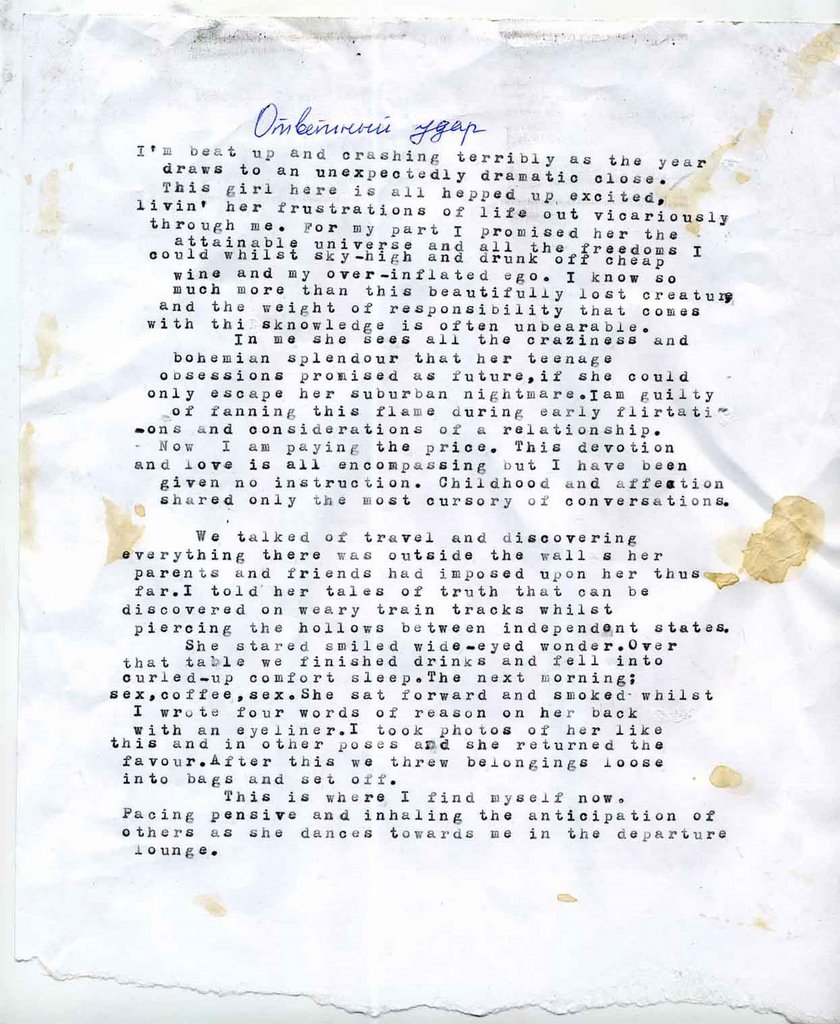 Ответный удар
I'm beat up and crashing terribly as the year
draws to an unexpectedly dramatic close.
This girl here is all hepped up excited,
livin' her frustrations of life out vicariously
through me. For my part I promised her the
attainable universe and all the freedoms I
could whilst sky-high and drunk off cheap
wine and my over-inflated ego. I know so
much more than this beautifully lost creature
and the weight of responsibility that comes
with thi sknowledge is often unbearable.
In me she sees all the craziness and
bohemian splendour that her teenage
obsessions promised as future,if she could
only escape her suburban nightmare.Iam guilty
of fanning this flame during early flirtati-
-ons and considerations of a relationship.
Now I am paying the price. This devotion
and love is all encompassing but I have been
given no instruction. Childhood and affection
shared only the most cursory of conversations.
We talked of travel and discovering
everything there was outside the wall s her
parents and friends had imposed upon her thus
far.I told her tales of truth that can be
discovered on weary train tracks whilst
piercing the hollows between independent states.
She stared smiled wide-eyed wonder.Over
that table we finished drinks and fell into
curled-up comfort sleep.The next morning;
sex,coffee,sex.She sat forward and smoked whilst
I wrote four words of reason on her back
with an eyeliner.I took photos of her like
this and in other poses and she returned the
favour.After this we threw belongings loose
into bags and set off.
This is where I find myself now.
Pacing pensive and inhaling the anticipation of
others as she dances towards me in the departure
lounge.